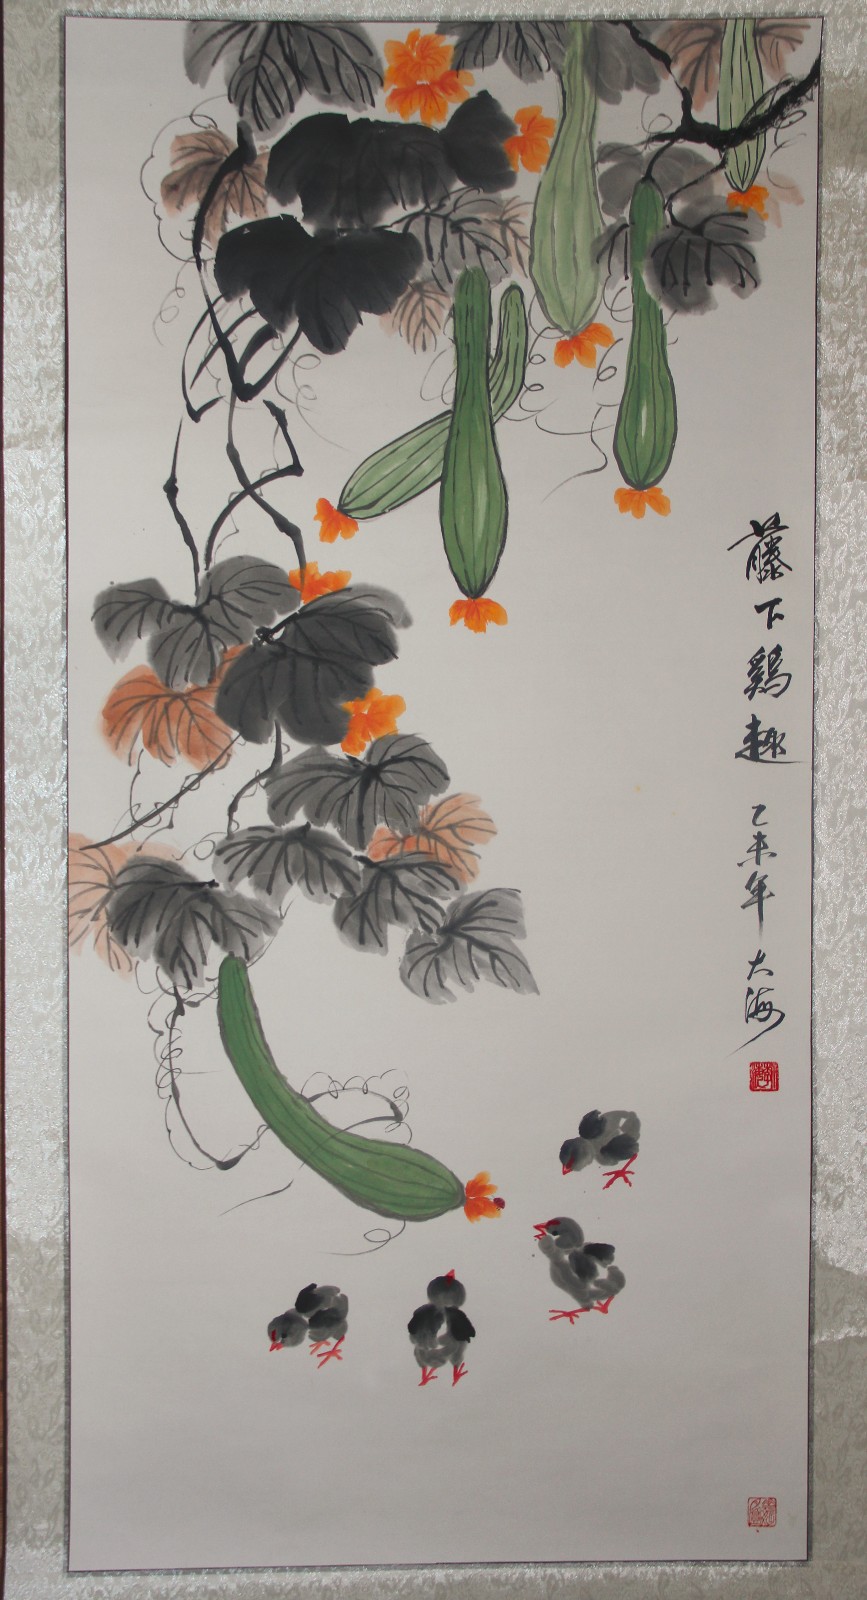 藤下鷄趣
乙未年
大海